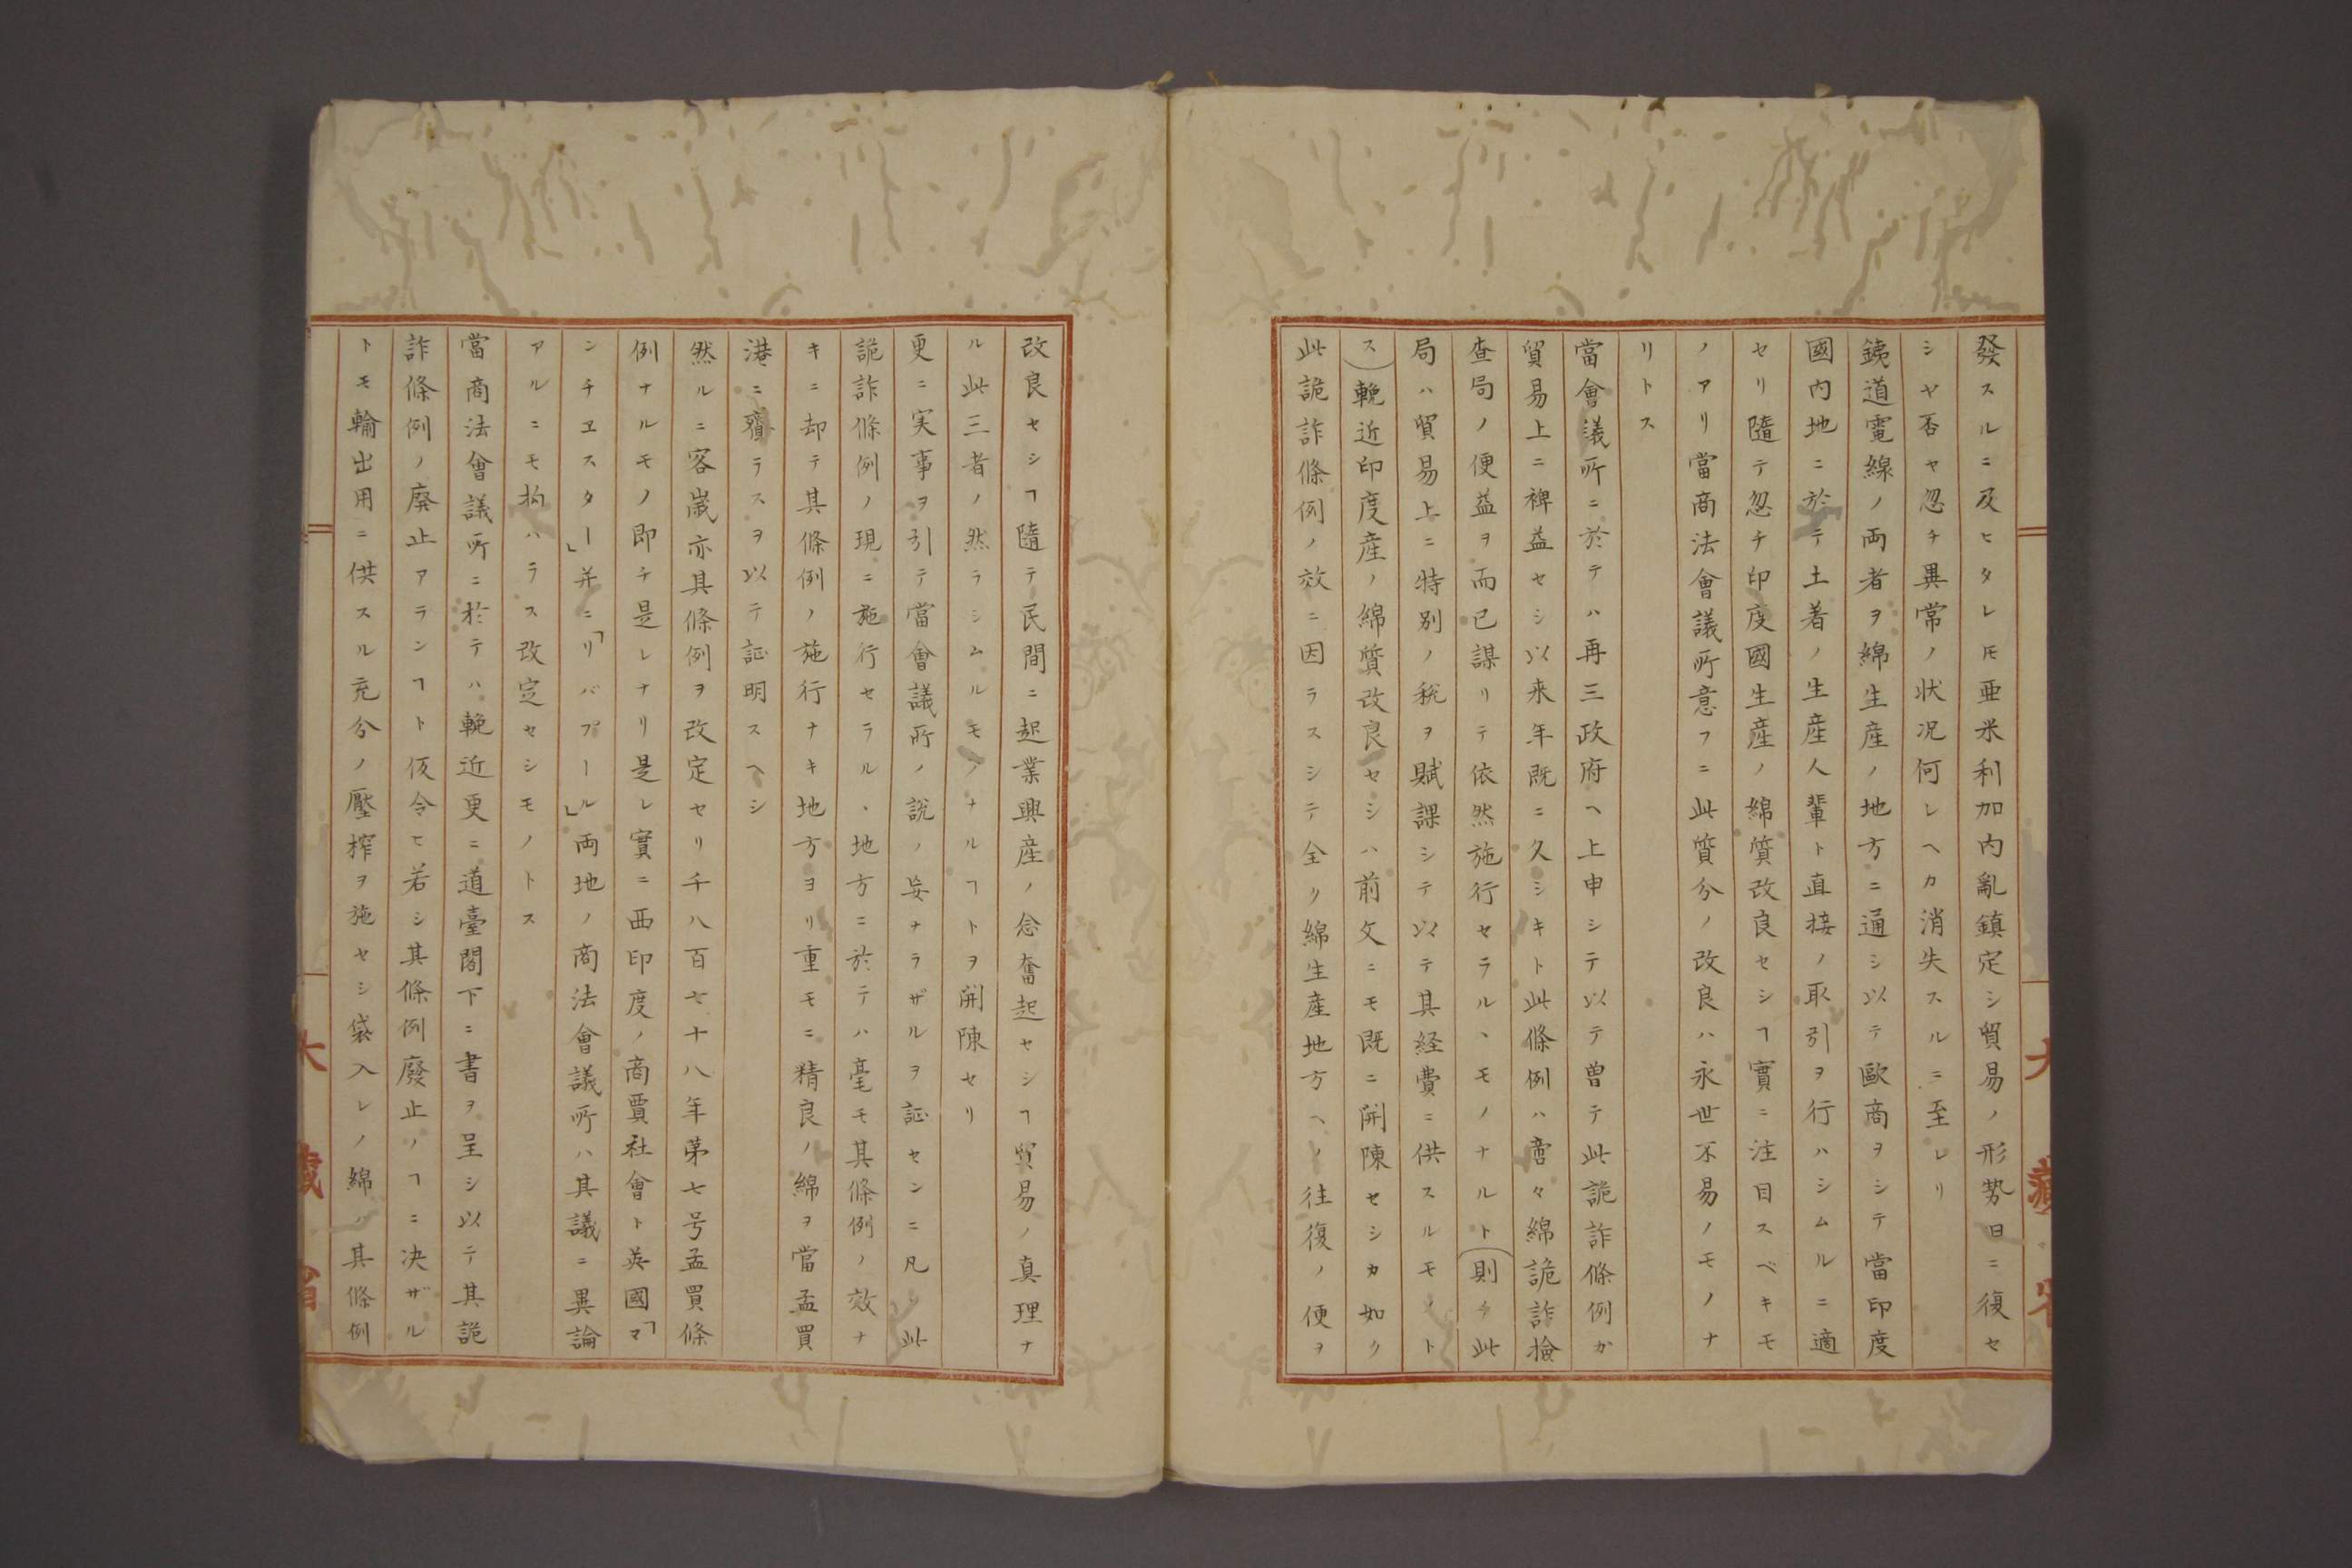 發スルニ及ヒタレ𪜈亜米利加内亂鎮定シ貿易ノ形势日ニ復セ
シヤ否ヤ忽チ異常ノ状况何レヘカ消失スルニ至レリ
銕道電線ノ両者ヲ綿生産ノ地方ニ通シ以テ歐商ヲシテ當印度
國内地ニ於テ土著ノ生産人輩ト直接ノ取引ヲ行ハシムルニ適
セリ隨テ忽チ印度國生産ノ綿質改良セシヿ實ニ注目スベキモ
ノアリ當商法會議所意フニ此質分ノ改良ハ永世不易ノモノナ
リトス
當會議所ニ於テハ再三政府ヘ上申シテ以テ曽テ此詭詐條例カ
貿易上ニ裨益セシ以来年既ニ久シキト此條例ハ啻々綿詭詐撿
查局ノ便益ヲ而已謀リテ依然施行セラルヽモノナルト(則チ此
局ハ貿易上ニ特別ノ税ヲ賦課シテ以テ其経費ニ供スルモノト
ス)輓近印度産ノ綿質改良セシハ前文ニモ既ニ開陳セシカ如ク
此詭詐條例ノ效ニ因ラスシテ全ク綿生産地方ヘノ往復ノ便ヲ
改良セシヿ隨テ民間ニ起業興産ノ念奮起セシヿ貿易ノ真理ナ
ル此三者ノ然ラシムルモノナルヿトヲ開陳セリ
更ニ実事ヲ引テ當會議所ノ說ノ妄ナラザルヲ証センニ凡ソ此
詭詐條例ノ現ニ施行セラルヽ地方ニ於テハ毫モ其條例ノ效ナ
キニ却テ其條例ノ施行ナキ地方ヨリ重モニ精良ノ綿ヲ當孟買
港ニ齎ラスヲ以テ証明スヘシ
然ルニ客嵗亦其條例ヲ改定セリ千八百七十八年第七号孟買條
例ナルモノ即チ是レナリ是レ實ニ西印度ノ商賈社會ト英國「マ
ンチヱスター」并ニ「リバプール」両地ノ商法會議所ハ其議ニ異論
アルニモ拘ハラス改定セシモノトス
當商法會議所ニ於テハ輓近更ニ道臺閣下ニ書ヲ呈シ以テ其詭
詐條例ノ廢止アランヿト仮令ヒ若シ其條例廢止ノヿニ决ザル
トモ輸出用ニ供スル充分ノ壓搾ヲ施セシ袋入レノ綿ハ其條例
大藏省
大藏省